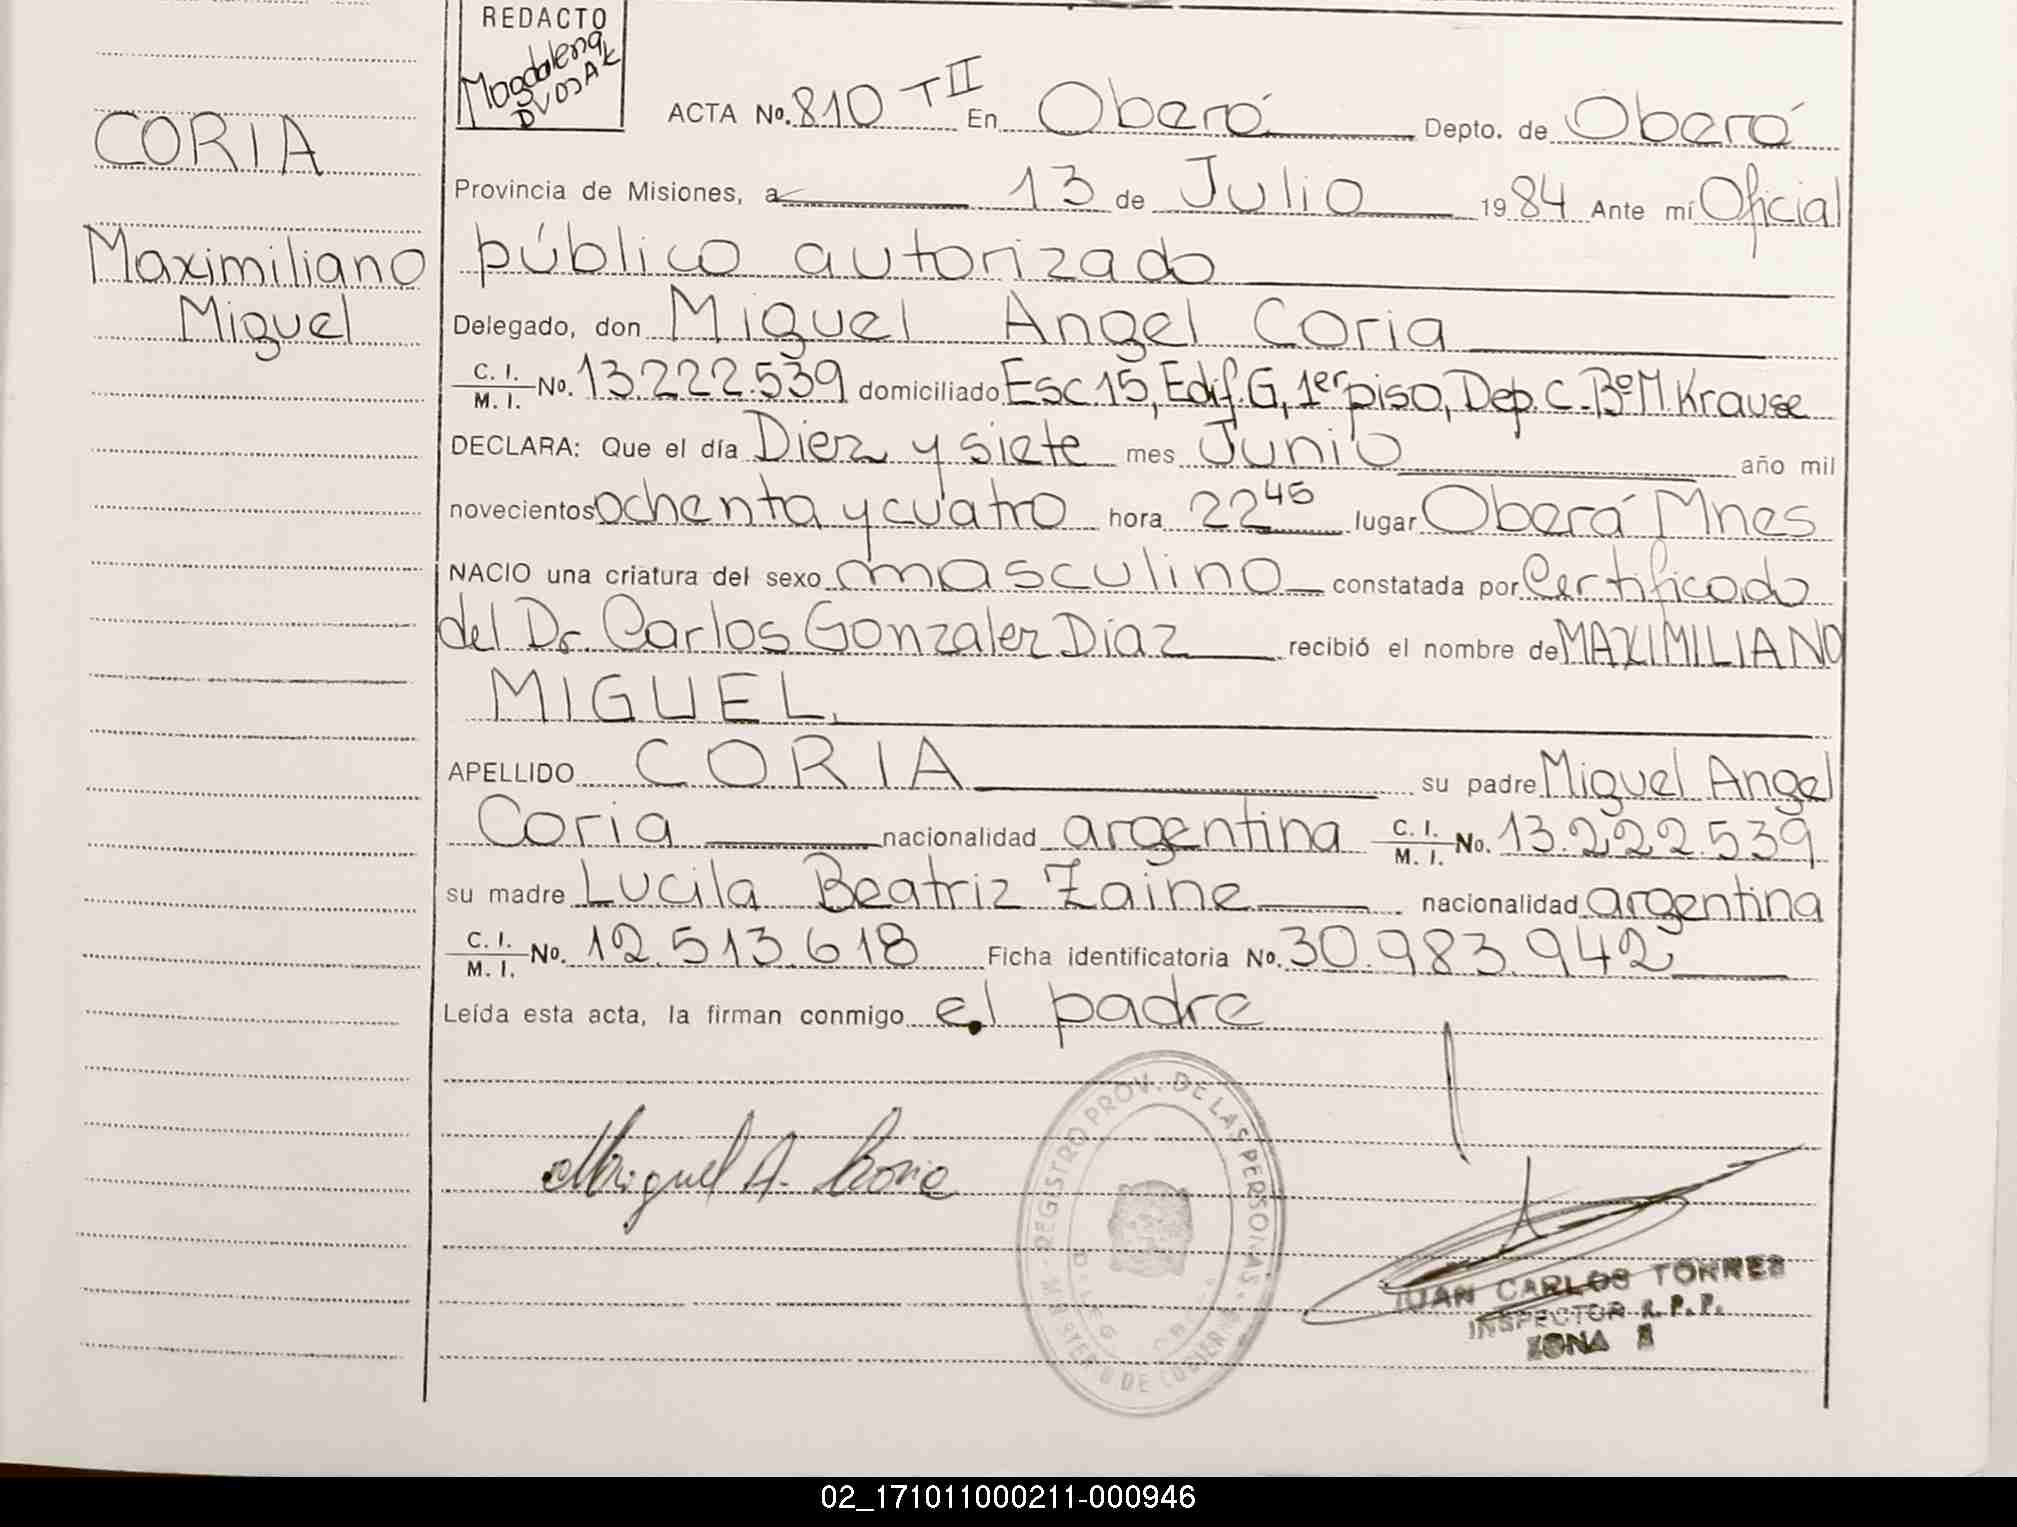 REDACTO
Magdalena
DVOSAK
ACTA No. 810 T II En Oberá Depto. de Oberá
CORIA
Provincia de Misiones, a 13 de Julio 1984 Ante mí Oficial
Maximiliano
público autorizado
Miguel
Delegado, don Miguel Angel Coria
C. I.
M. I. No. 13.222.539 domiciliado Esc 15, Edif. G, 1er piso, Dep. C - Bº M. Krause
DECLARA: Que el día Diez y siete mes Junio año mil
novecientos ochenta y cuatro hora 22 45 lugar Oberá Mnes
NACIO una criatura del sexo masculino constatada por Certificado
del Dr. Carlos Gonzalez Diaz recibió el nombre de MAXIMILIANO
MIGUEL.
APELLIDO CORIA su padre Miguel Angel
Coria nacionalidad argentina C. I. M. I. No. 13.222.539
su madre Lucila Beatriz Zaine nacionalidad argentina
C. I.
M. I. No. 12.513.618 Ficha identificatoria No. 30.983.942
Leída esta acta, la firman conmigo el padre
Miguel A. Coria
REGISTRO PROV. DE LAS PERSONAS
JUAN CARLOS TORRES
INSPECTOR R. P. P.
ZONA
02_171011000211-000946